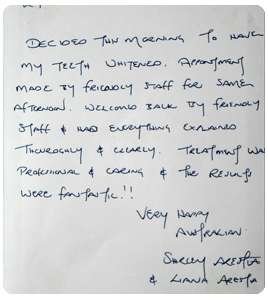 DECIDED THIS MORNING TO HAVE
MY TEETH WHITENED. APPOINTMENT
MADE BY FRIENDLY STAFF FOR SAME
AFTERNOON. WELCOMED BACK BY FRIENDLY
STAFF & HAD EVERYTHING EXPLAINED
THOROUGHLY & CLEARLY. TREATMENT WAS
PROFESSIONAL & CARING & THE RESULTS
WERE FANTASTIC!!
VERY HAPPY
AUSTRALIAN
SHELLEY
& LIANA